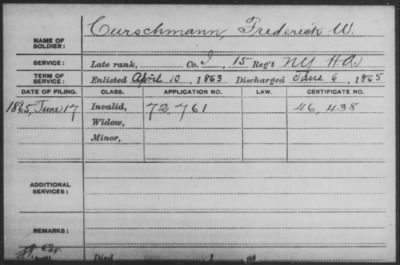 NAME OF SOLDIER: Curschmann, Frederick W.
SERVICE: Late rank, Co. I, 15 Reg't NY H.A.
TERM OF SERVICE: Enlisted April 10, 1863 Discharged June 6, 1865
DATE OF FILING. CLASS. APPLICATION NO. LAW. CERTIFICATE NO.
1865, June 17 Invalid, 72,761 46,438
Widow,
Minor,
ADDITIONAL SERVICES:
REMARKS:
Died